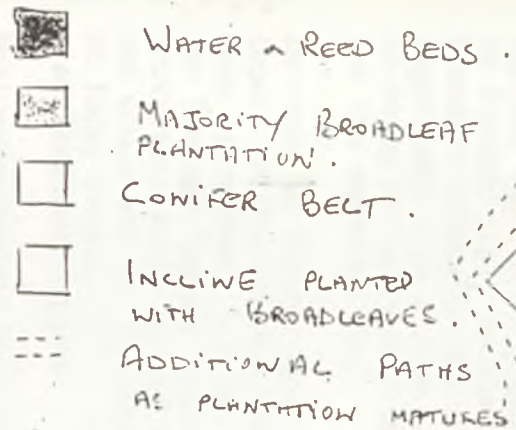 WATER & REED BEDS.
MAJORITY BROADLEAF
PLANTATION.
CONIFER BELT.
INCLINE PLANTED
WITH BROADLEAVES.
ADDITIONAL PATHS
AS PLANTATION MATURES